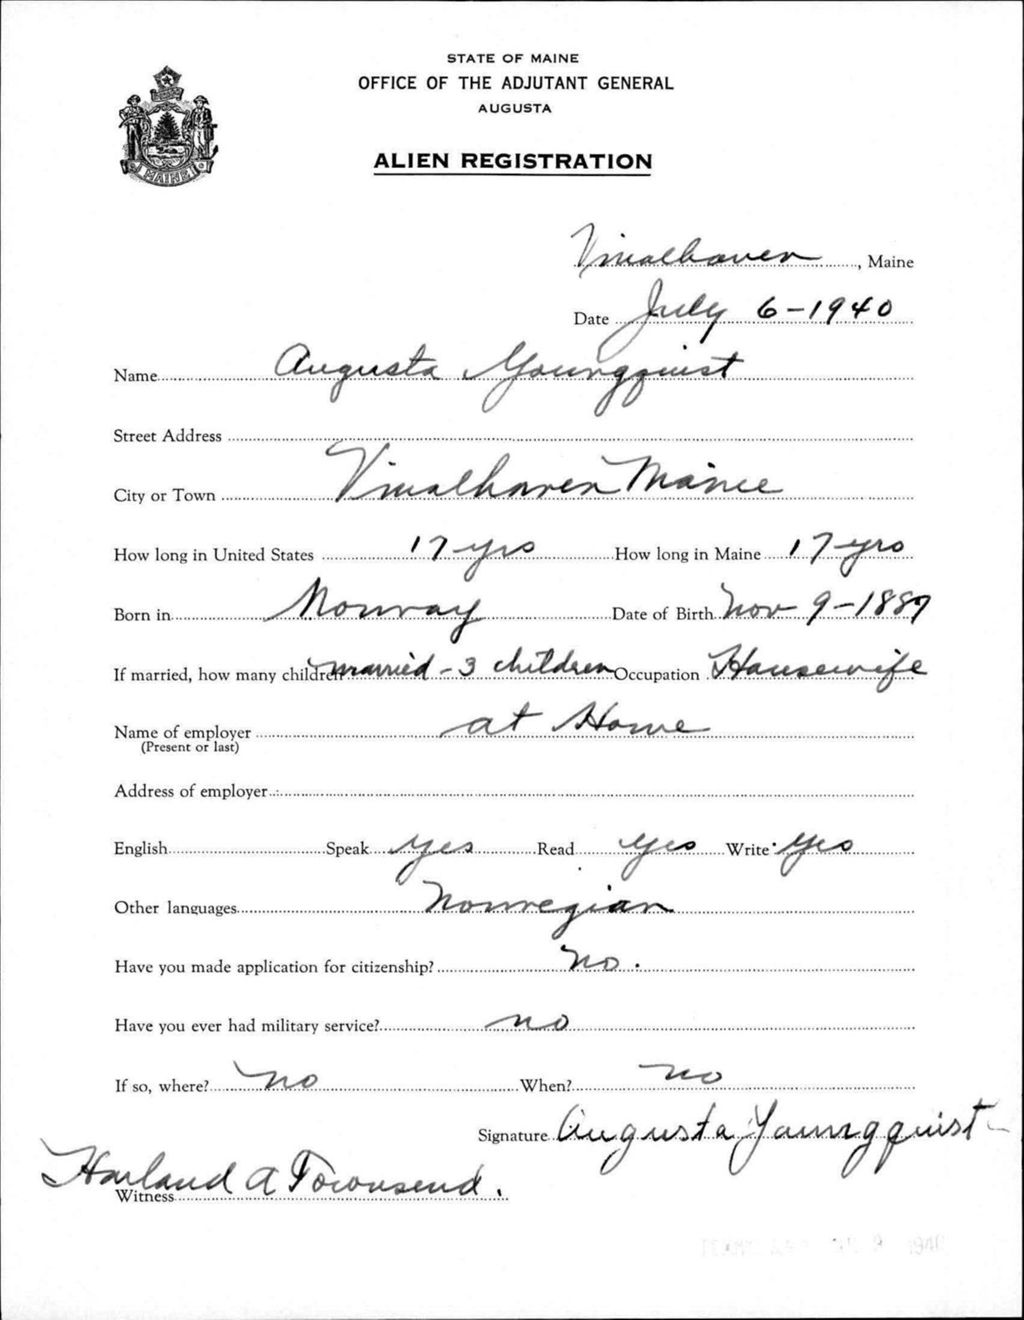 STATE OF MAINE
OFFICE OF THE ADJUTANT GENERAL
AUGUSTA
ALIEN REGISTRATION
MAINE
Vinalhaven, Maine
Date July 6-1940
Name Augusta Youngquist
Street Address
City or Town Vinalhaven Maine
How long in United States 17 yrs How long in Maine 17 yrs
Born in Norway Date of Birth Nov 9-1887
If married, how many children married - 3 children Occupation Housewife
Name of employer at Home
(Present or last)
Address of employer
English Speak yes Read yes Write yes
Other languages Norwegian
Have you made application for citizenship? No.
Have you ever had military service? no
If so, where? no When? no
Signature Augusta Youngquist
Harland A Townsend.
Witness